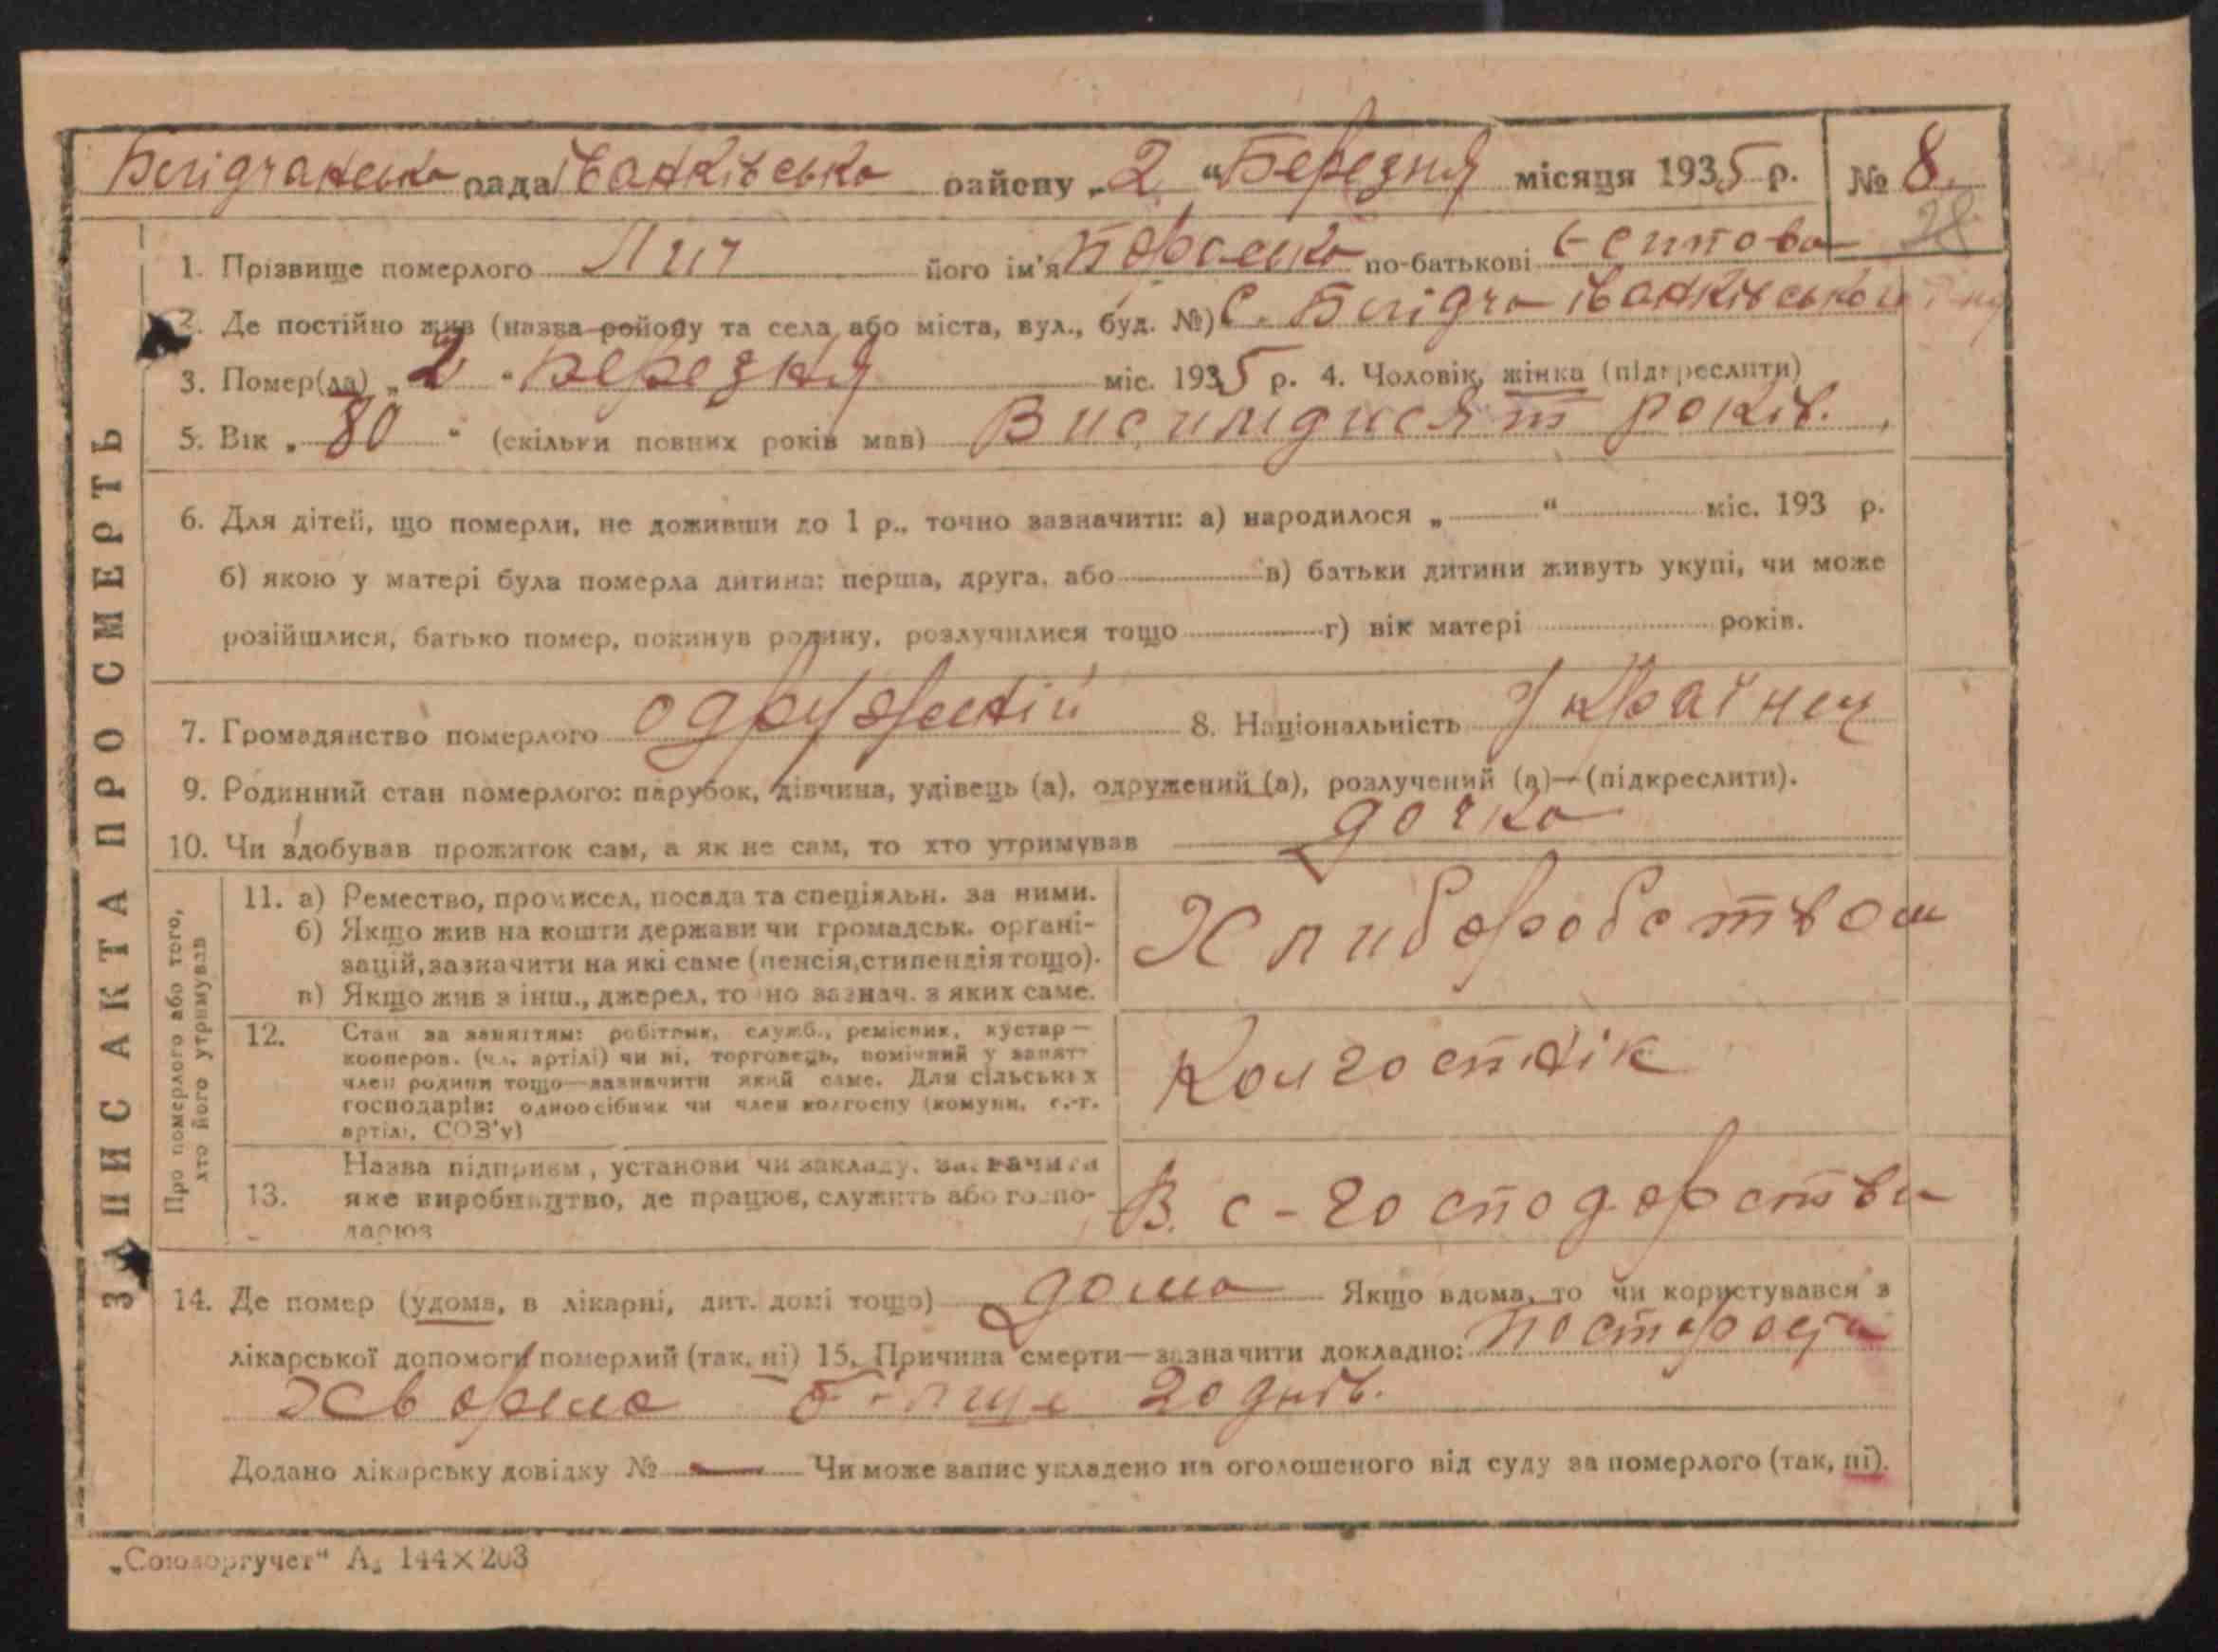 рада Іванківська району „2 “ Березня місяця 1935 р. № 8.
28
1. Прізвище померлого Лич його ім'я по-батькові
2. Де постійно жив (назва району та села або міста, вул., буд. №) С.
3. Помер(ла) „2 “ Березня міс. 1935 р. 4. Чоловік, жінка (підкреслити)
5. Вік „ 80 “ (скільки повних років мав) Висимдисят років.
6. Для дітей, що померли, не доживши до 1 р., точно зазначити: а) народилося „ “ міс. 193 р.
б) якою у матері була померла дитина: перша, друга, або в) батьки дитини живуть укупі, чи може
розійшлися, батько помер, покинув родину, розлучилися тощо г) вік матері років.
7. Громадянство померлого 8. Національність Українец
9. Родинний стан померлого: парубок, дівчина, удівець (а), одружений (а), розлучений (а)—(підкреслити).
10. Чи здобував прожиток сам, а як не сам, то хто утримував дочка
ЗАПИС АКТА ПРО СМЕРТЬ
Про померлого або того,
хто його утримував
11. а) Ремество, промисел, посада та спеціяльн. за ними.
б) Якщо жив на кошти держави чи громадськ. органі-
зацій, зазначити на які саме (пенсія, стипендія тощо).
в) Якщо жив з інш., джерел, точно зазнач. з яких саме.
Хлиборобством
12. Стан за заняттям: робітник, служб., ремісник, кустар—
кооперов. (чл. артілі) чи ні, торговець, помічний у занятт
член родини тощо—зазначити який саме. Для сільських
господарів: одноосібник чи член колгоспу (комуни, с.-г.
артілі, СОЗ'у)
Колгоспнік
13. Назва підприєм, установи чи закладу, зазначити
яке виробництво, де працює, служить або госпо-
дарює
В. с-господарстви
14. Де помер (удома, в лікарні, дит. домі тощо) дома Якщо вдома, то чи користувався з
лікарської допомоги померлий (так, ні) 15. Причина смерти—зазначити докладно:
20 днів.
Додано лікарську довідку № Чи може запис укладено на оголошеного від суду за померлого (так, ні).
„Союзоргучет“ А₅ 144×203